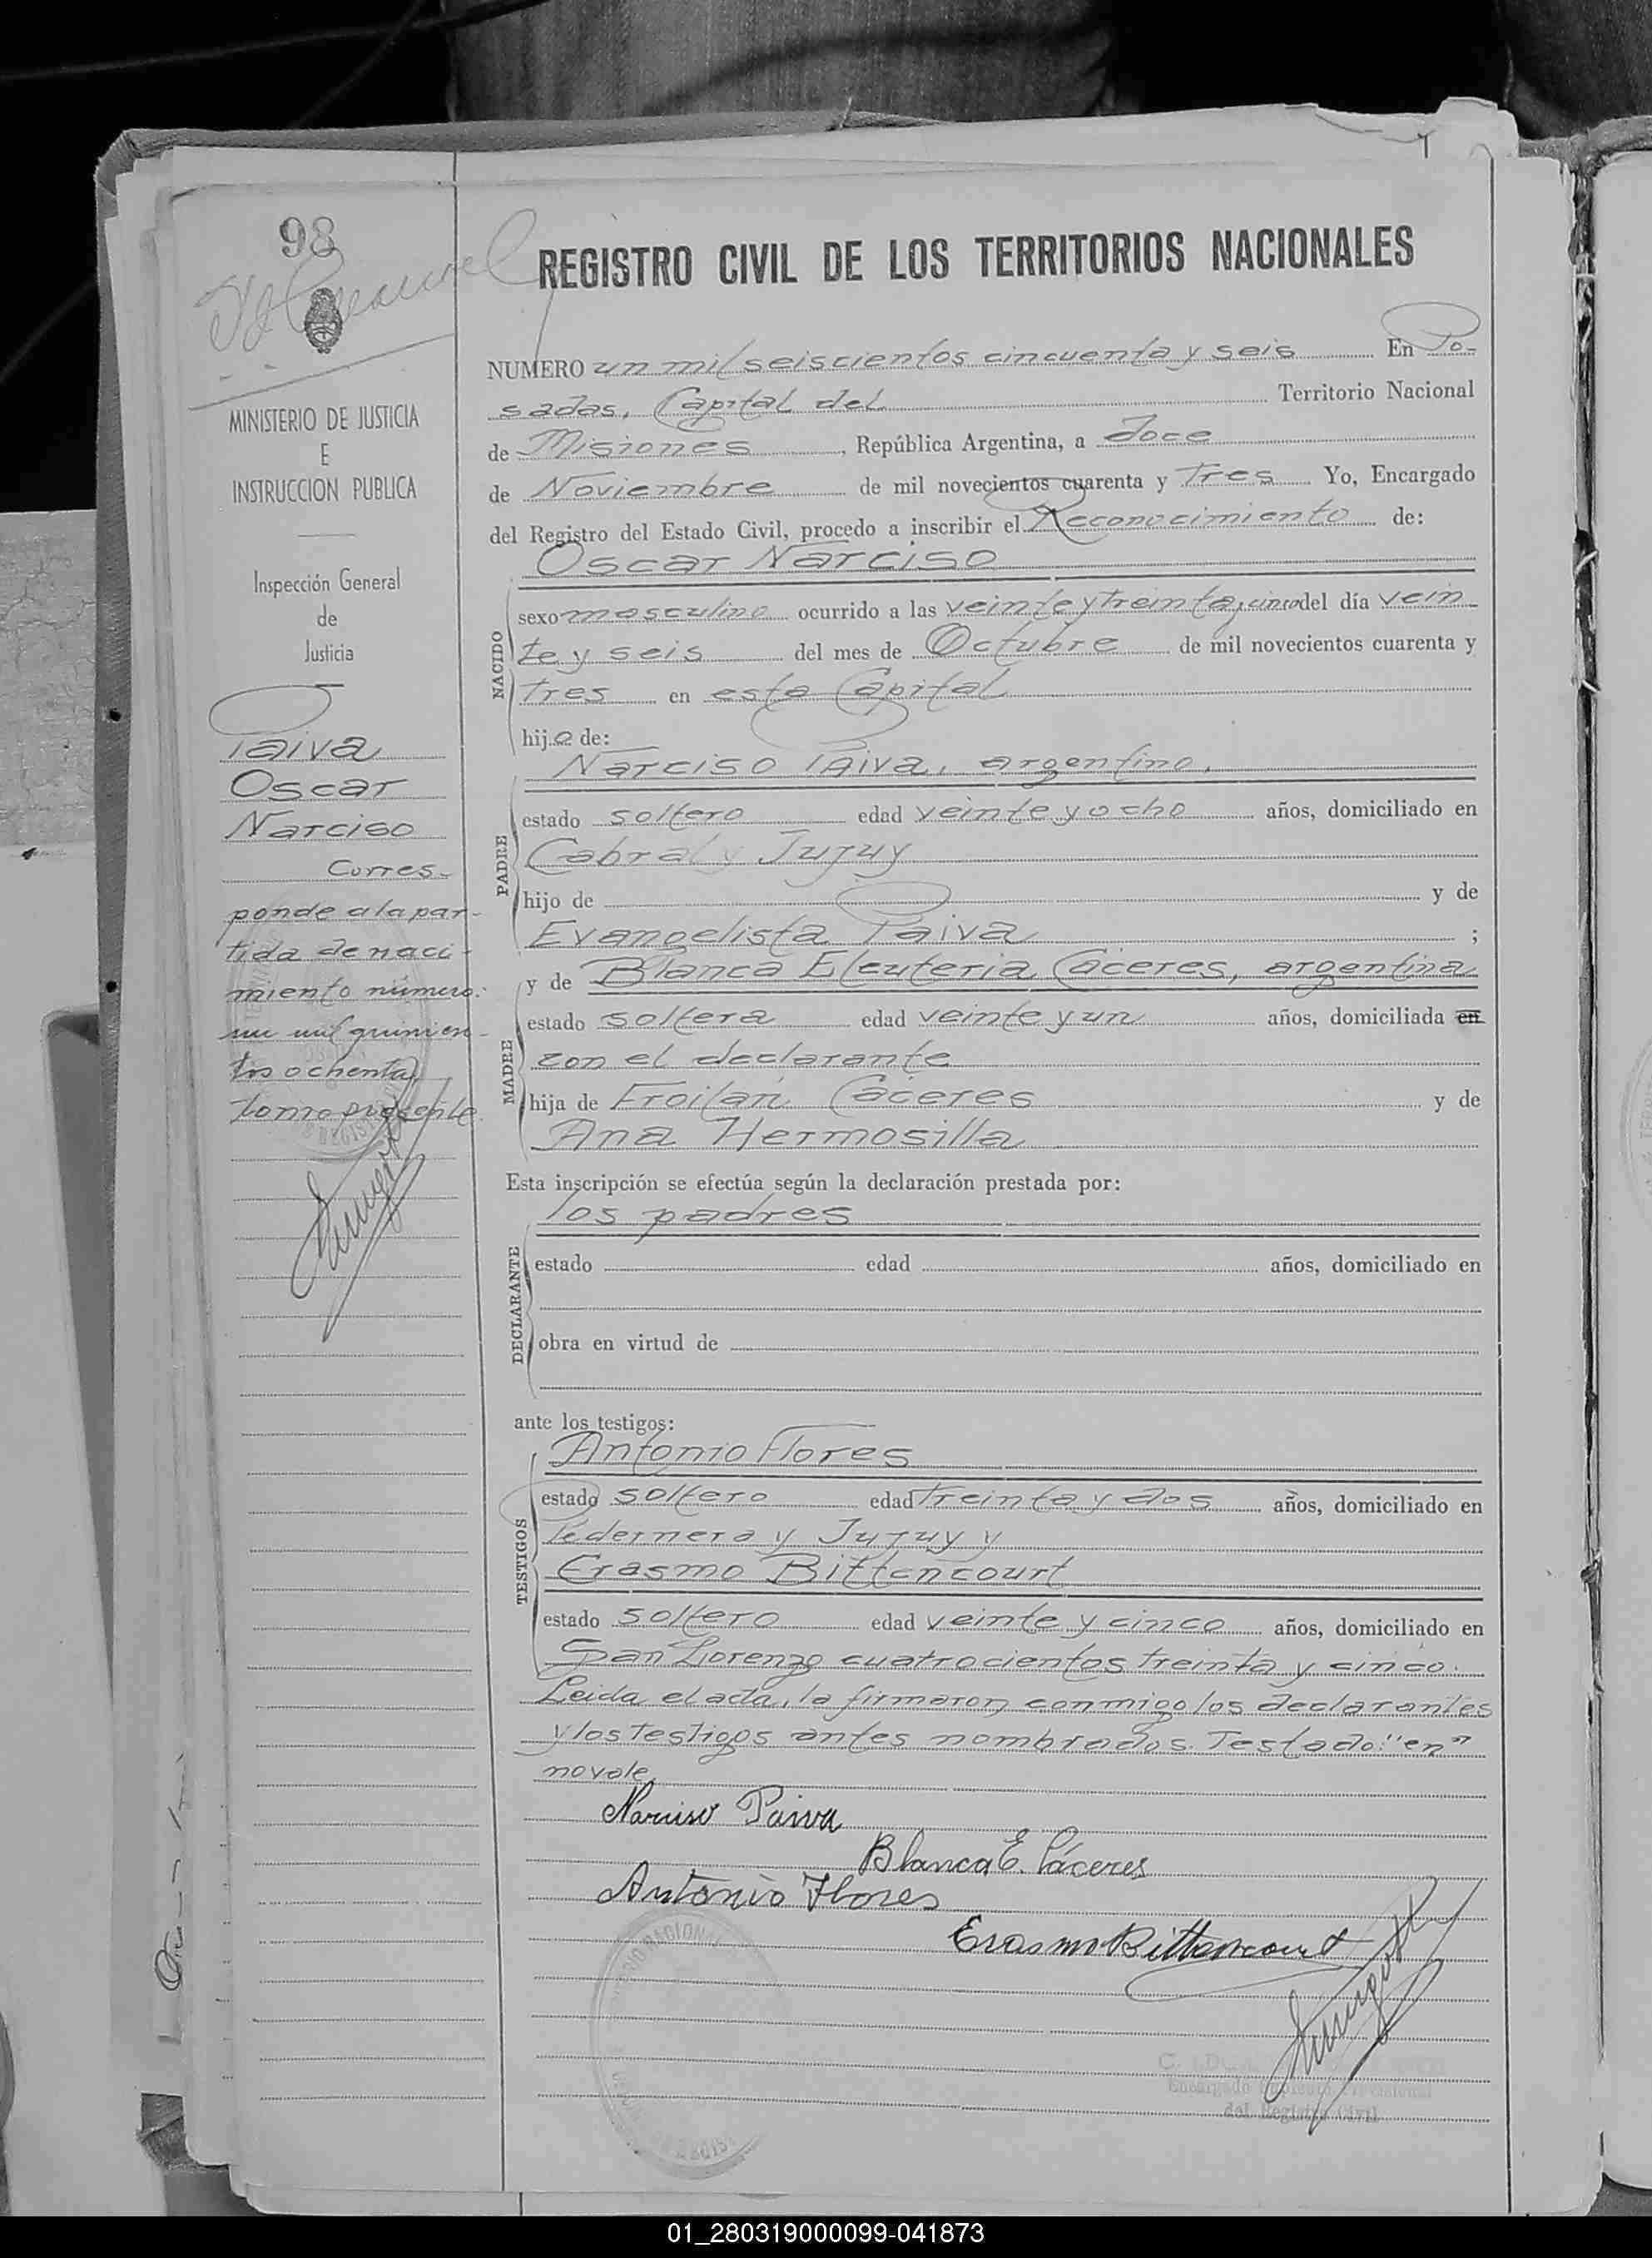 98
REGISTRO CIVIL DE LOS TERRITORIOS NACIONALES
MINISTERIO DE JUSTICIA
E
INSTRUCCION PUBLICA
Inspección General
de
Justicia
Paiva
Oscar
Narciso
Corres-
ponde a la par-
tida de naci-
miento número:
un mil quinien-
tos ochenta,
tomo presente.
NUMERO un mil seiscientos cincuenta y seis En Po-
sadas, Capital del Territorio Nacional
de Misiones, República Argentina, a doce
de Noviembre de mil novecientos cuarenta y Tres Yo, Encargado
del Registro del Estado Civil, procedo a inscribir el Reconocimiento de:
Oscar Narciso
NACIDO
sexo masculino ocurrido a las veinte y treinta y cinco del día vein-
te y seis del mes de Octubre de mil novecientos cuarenta y
tres en esta Capital
hijo de:
Narciso Paiva, argentino,
PADRE
estado soltero edad veinte y ocho años, domiciliado en
Cabral y Jujuy
hijo de y de
Evangelista Paiva ;
y de Blanca Eleuteria Cáceres, argentina
MADRE
estado soltera edad veinte y un años, domiciliada en
con el declarante
hija de Froilán Cáceres y de
Ana Hermosilla
Esta inscripción se efectúa según la declaración prestada por:
los padres
DECLARANTE
estado edad años, domiciliado en
obra en virtud de
ante los testigos:
Antonio Flores
TESTIGOS
estado soltero edad treinta y dos años, domiciliado en
Pedernera y Jujuy y
Erasmo Bittencourt
estado soltero edad veinte y cinco años, domiciliado en
San Lorenzo cuatrocientos treinta y cinco.
Leída el acta, la firmaron conmigo los declarantes
y los testigos antes nombrados. Testado: "en"
no vale
Narciso Paiva
Blanca E. Cáceres
Antonio Flores
Erasmo Bittencourt
del Registro Civil
01_280319000099-041873